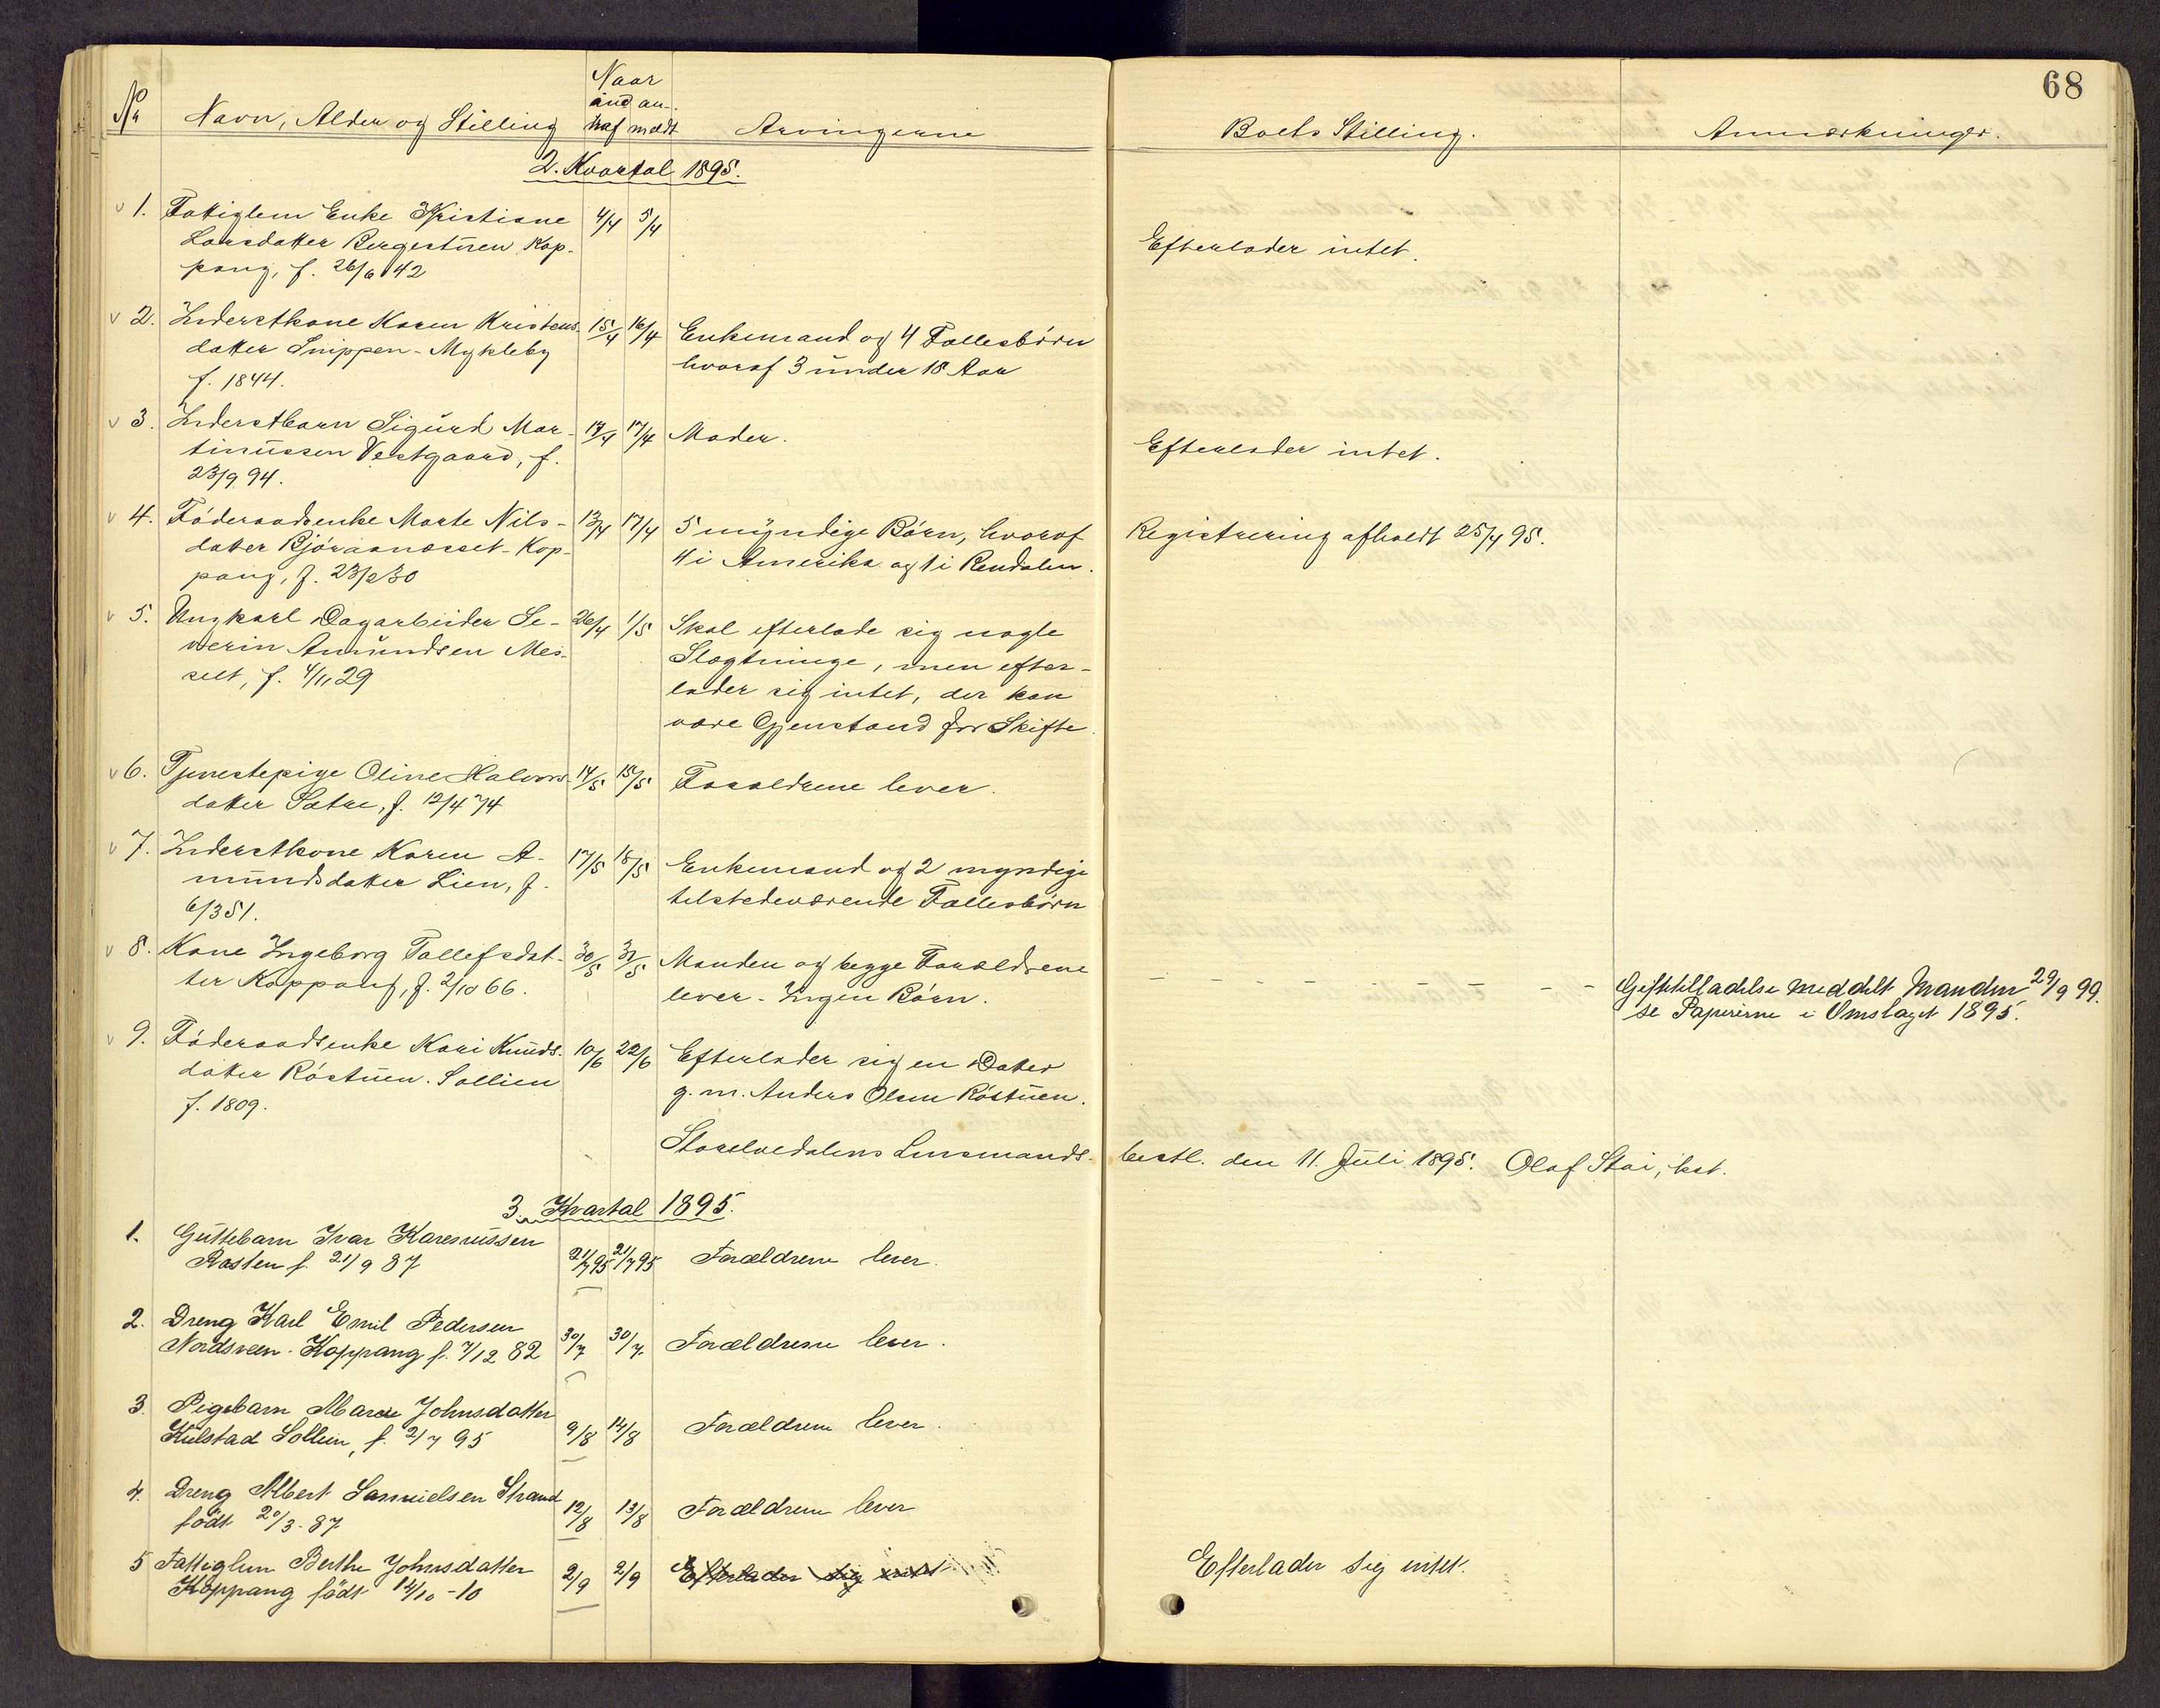 68
Nr
Navn, Alder og Stilling
Naar
død an-
haf mældt
Arvingerne
Boets Stilling.
Anmærkninger.
2. Kvartal 1895.
1. Fattiglem Enke Kristiane 4/4 5/4
Larsdatter Bergestuen Kop-
pang, f. 26/6 42
Efterlader intet.
2. Inderstkone Karen Kristens- 15/4 16/4 Enkemand og 4 Fællesbörn
datter Snippen-Mykleby hvoraf 3 under 18 Aar
f. 1844.
3. Inderstbarn Sigurd Mar- 17/4 Moder. Efterlader intet.
tinussen Vestgaard, f.
23/9 94.
4. Föderaadsenke Marte Nils- 13/4 17/4 5 myndige Börn, hvoraf Registrering afholdt 25/4 95.
datter Björaanæsset-Kop- 4 i Amerika og 1 i Rendalen.
pang, f. 23/2 30
5. Ungkarl Dagarbeider Se- 26/4 1/5 Skal efterlade sig nogle
verin Amundsen Mes- Slægtninge, men efter-
selt, f. 4/11 29 lader sig intet, der kan
være Gjenstand for Skifte.
6. Tjenestepige Oline Halvors- 14/5 15/5 Forældrene lever.
datter Sætre, f. 12/4 74
7. Inderstkone Karen A- 17/5 18/5 Enkemand og 2 myndige
mundsdatter Lien, f. tilstedeværende Fællesbörn
6/3 51.
8. Kone Ingeborg Tollefsdat- 30/5 31/5 Manden og begge Forældrene
ter Koppang, f. 2/10 66. lever. Ingen Börn.
Giftetilladelse meddelt Manden 29/9 99.
se Papirerne i Omslaget 1895.
9. Föderaadsenke Kari Knuds- 10/6 22/6 Efterlader sig en Datter
datter Röstuen. Sollien g. m. Anders Olsen Röstuen.
f. 1809.
Storelvedalens Lensmandsbestl. den 11. Juli 1895. Olaf Stai, kst.
3. Kvartal 1895.
1. Guttebarn Ivar Karenussen
Rasten f. 21/9 87 21/7 95 21/7 95 Forældrene lever.
2. Dreng Karl Emil Pedersen
Nordsveen. Koppang f. 7/12 82 30/7 30/7 Forældrene lever.
3. Pigebarn Marie Johnsdatter
Kulstad Sollien, f. 2/7 95 9/8 14/8 Forældrene lever.
4. Dreng Albert Samuelsen Strand
födt 20/3. 87 12/8 13/8 Forældrene lever
5 Fattiglem Berthe Johnsdatter 2/9 2/9 Efterlader sig intet Efterlader sig intet.
Koppang födt 14/10-10